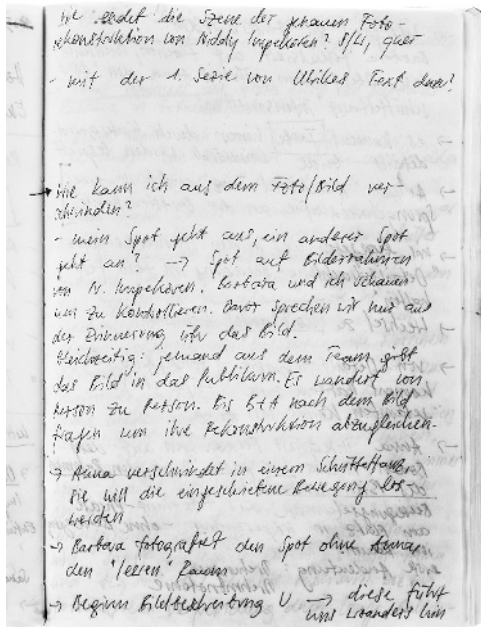 Wie endet die Szene der genauen Foto-
rekonstruktion von Niddy Impekoven? S/U, quer
- mit der 1. Serie von Ulrikes Text dazu?
→ Wie kann ich aus dem Foto/Bild ver-
schwinden?
- mein Spot geht aus, ein anderer Spot
geht an? → Spot auf Bilderrahmen
von N. Impekoven. Barbara und ich schauen
um zu kontrollieren. Davor sprechen wir nur aus
der Erinnerung über das Bild.
Gleichzeitig: jemand aus dem Team gibt
das Bild in das Publikum. Es wandert von
Person zu Person. Bis B+A nach dem Bild
fragen um ihre Rekonstruktion abzugleichen.
→ Anna verschwindet in einem Schütteltanz
sie will die eingeschriebene Bewegung los
werden
→ Barbara fotografiert den Spot ohne Anna,
den "leeren" Raum
→ Beginn Bildbeschreibung U → diese führt
uns woanders hin